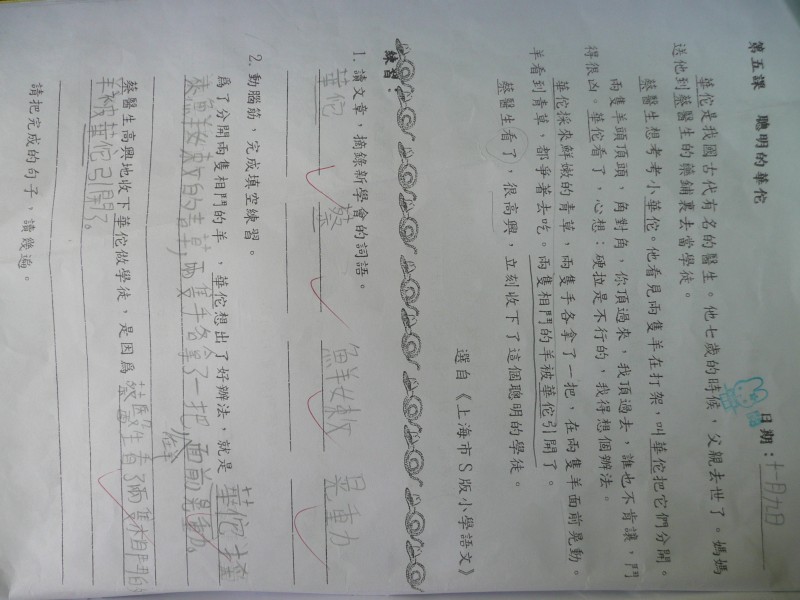 第五課 聰明的華佗
日期：十月九日
華佗是我國古代有名的醫生。他七歲的時候，父親去世了。媽媽
送他到蔡醫生的藥鋪裏去當學徒。
蔡醫生想考考小華佗。他看見兩隻羊在打架，叫華佗把它們分開。
兩隻羊頭頂頭，角對角，你頂過來，我頂過去，誰也不肯讓，鬥
得很凶。華佗看了，心想：硬拉是不行的，我得想個辦法。
華佗採來鮮嫩的青草，兩隻手各拿了一把，在兩隻羊面前晃動。
羊看到青草，都爭著去吃。兩隻相鬥的羊被華佗引開了。
蔡醫生看了，很高興，立刻收下了這個聰明的學徒。
選自《上海市S版小學語文》
練習：
1. 讀文章，摘錄新學會的詞語。
華佗 蔡 鮮嫩 晃動
2. 動腦筋，完成填空練習。
爲了分開兩隻相鬥的羊，華佗想出了好辦法，就是 華佗採
來鮮嫩的青草，兩隻手各拿了一把 在羊面前晃動。
蔡醫生高興地收下華佗做學徒，是因爲 蔡醫生看了兩隻相鬥的
羊被華佗引開了。
請把完成的句子，讀幾遍。